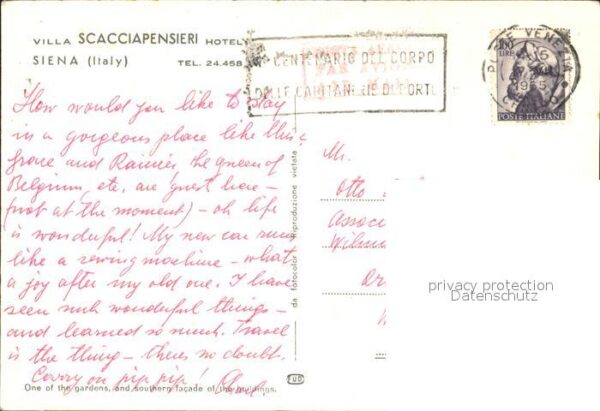 VILLA SCACCIAPENSIERI HOTEL
SIENA (Italy) TEL. 24.458
CENTENARIO DEL CORPO
DELLE CAPITANERIE DI PORTO
100
LIRE
POSTE ITALIANE
VENEZIA
How would you like to stay
in a gorgeous place like this?
Grace and Rainier, the queen of
Belgium, etc. are guest here –
(not at the moment) – oh life
is wonderful! My new car runs
like a sewing machine – what
a joy after my old one. I have
seen such wonderful things –
and learned so much. Travel
is the thing – theres no doubt.
Carry on pip pip!
One of the gardens, and southern façade of the buildings.
da fotocolor riproduzione vietata
Mr.
Otto
Assoc
privacy protection
Datenschutz